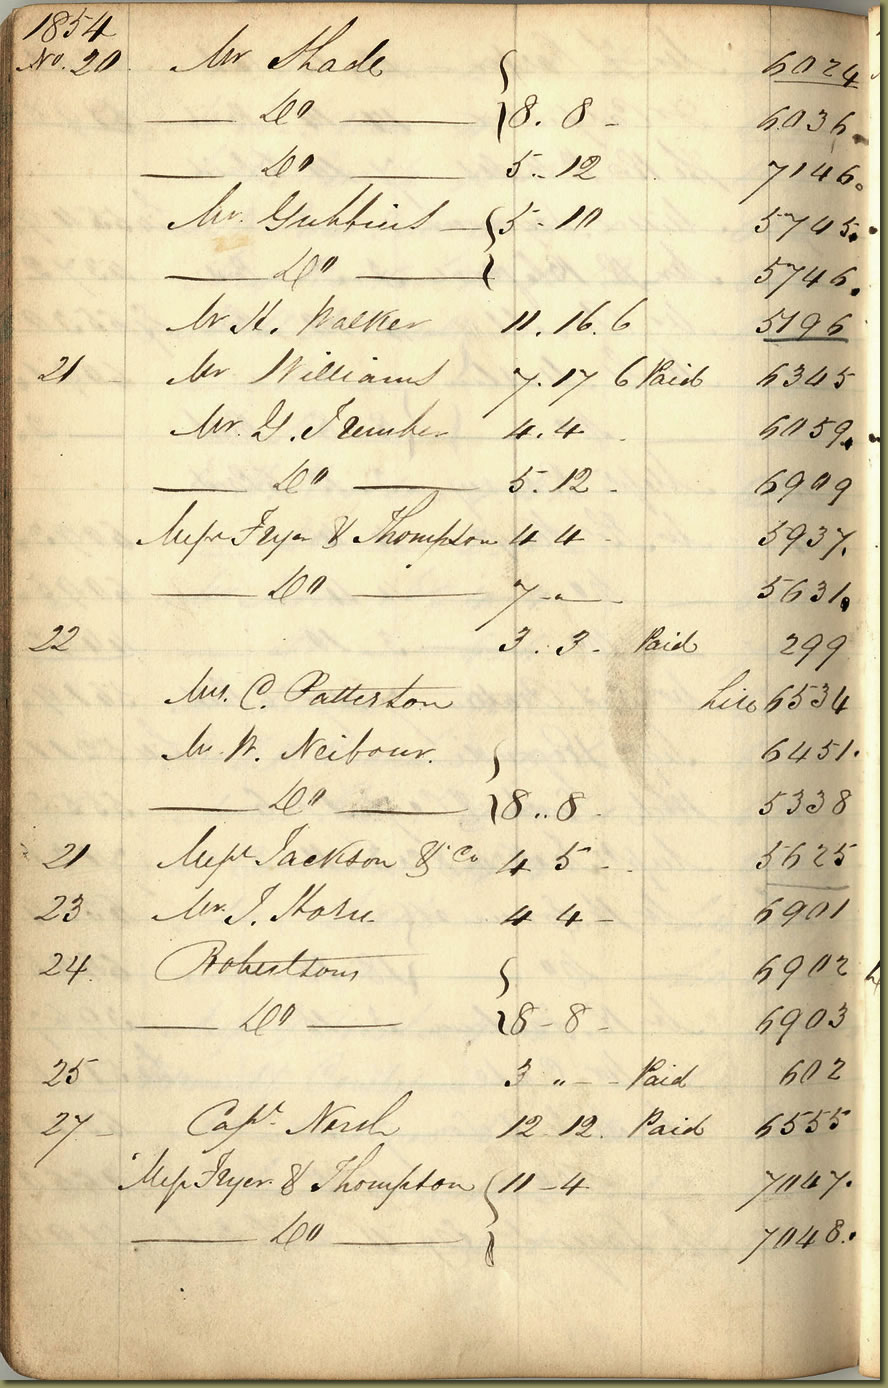 1854
No. 20 Mr Shade 6024
Do 8. 8 - 6036
Do 5.. 12 7146.
Mr. Gubbins 5 - 10 5745.
Do 5746.
Mr H. Walker 11. 16. 6 5196
21 Mr Williams 7. 17 6 Paid 6345
Mr. G. 4. 4 - 6059.
Do 5. 12 - 6909
Messrs Fryer & Thompson 4 4 - 5937.
Do 7 - " - 5631.
22 3. 3 - Paid 299
Mrs. C. Patterson 6534
Mr W. Neibour. 6451.
Do 8.. 8 - 5338
21 Messrs Jackson & Co 4 5 - 5625
23 Mr. J. Horn 4 4 - 6901
24. Robertson 6902
Do 8 - 8 - 6903
25 3 " - Paid 602
27 - Capt. North 12 - 12. Paid 6555
Mess Fryer & Thompson 11 - 4 7047.
Do 7048.